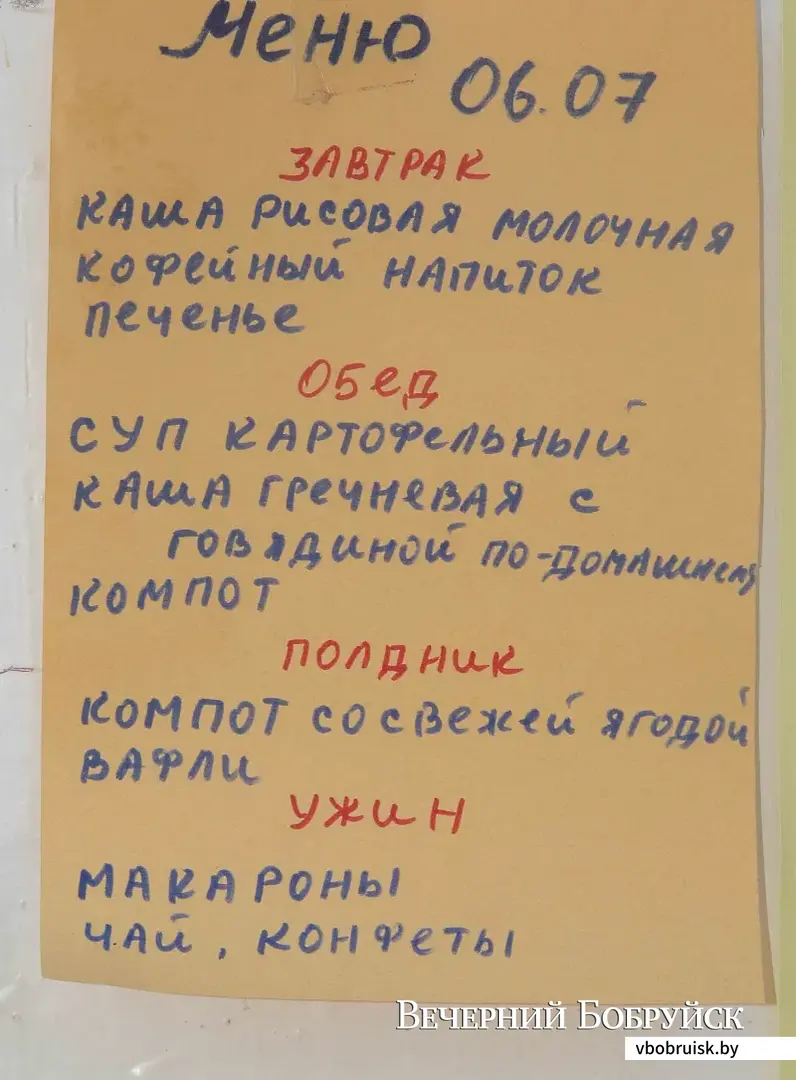 Меню
06.07
ЗАВТРАК
КАША РИСОВАЯ МОЛОЧНАЯ
КОФЕЙНЫЙ НАПИТОК
ПЕЧЕНЬЕ
ОБЕД
СУП КАРТОФЕЛЬНЫЙ
КАША ГРЕЧНЕВАЯ С
ГОВЯДИНОЙ ПО-ДОМАШНЕМУ
КОМПОТ
ПОЛДНИК
КОМПОТ СО СВЕЖЕЙ ЯГОДОЙ
ВАФЛИ
УЖИН
МАКАРОНЫ
ЧАЙ, КОНФЕТЫ
ВЕЧЕРНИЙ БОБРУЙСК
vbobruisk.by